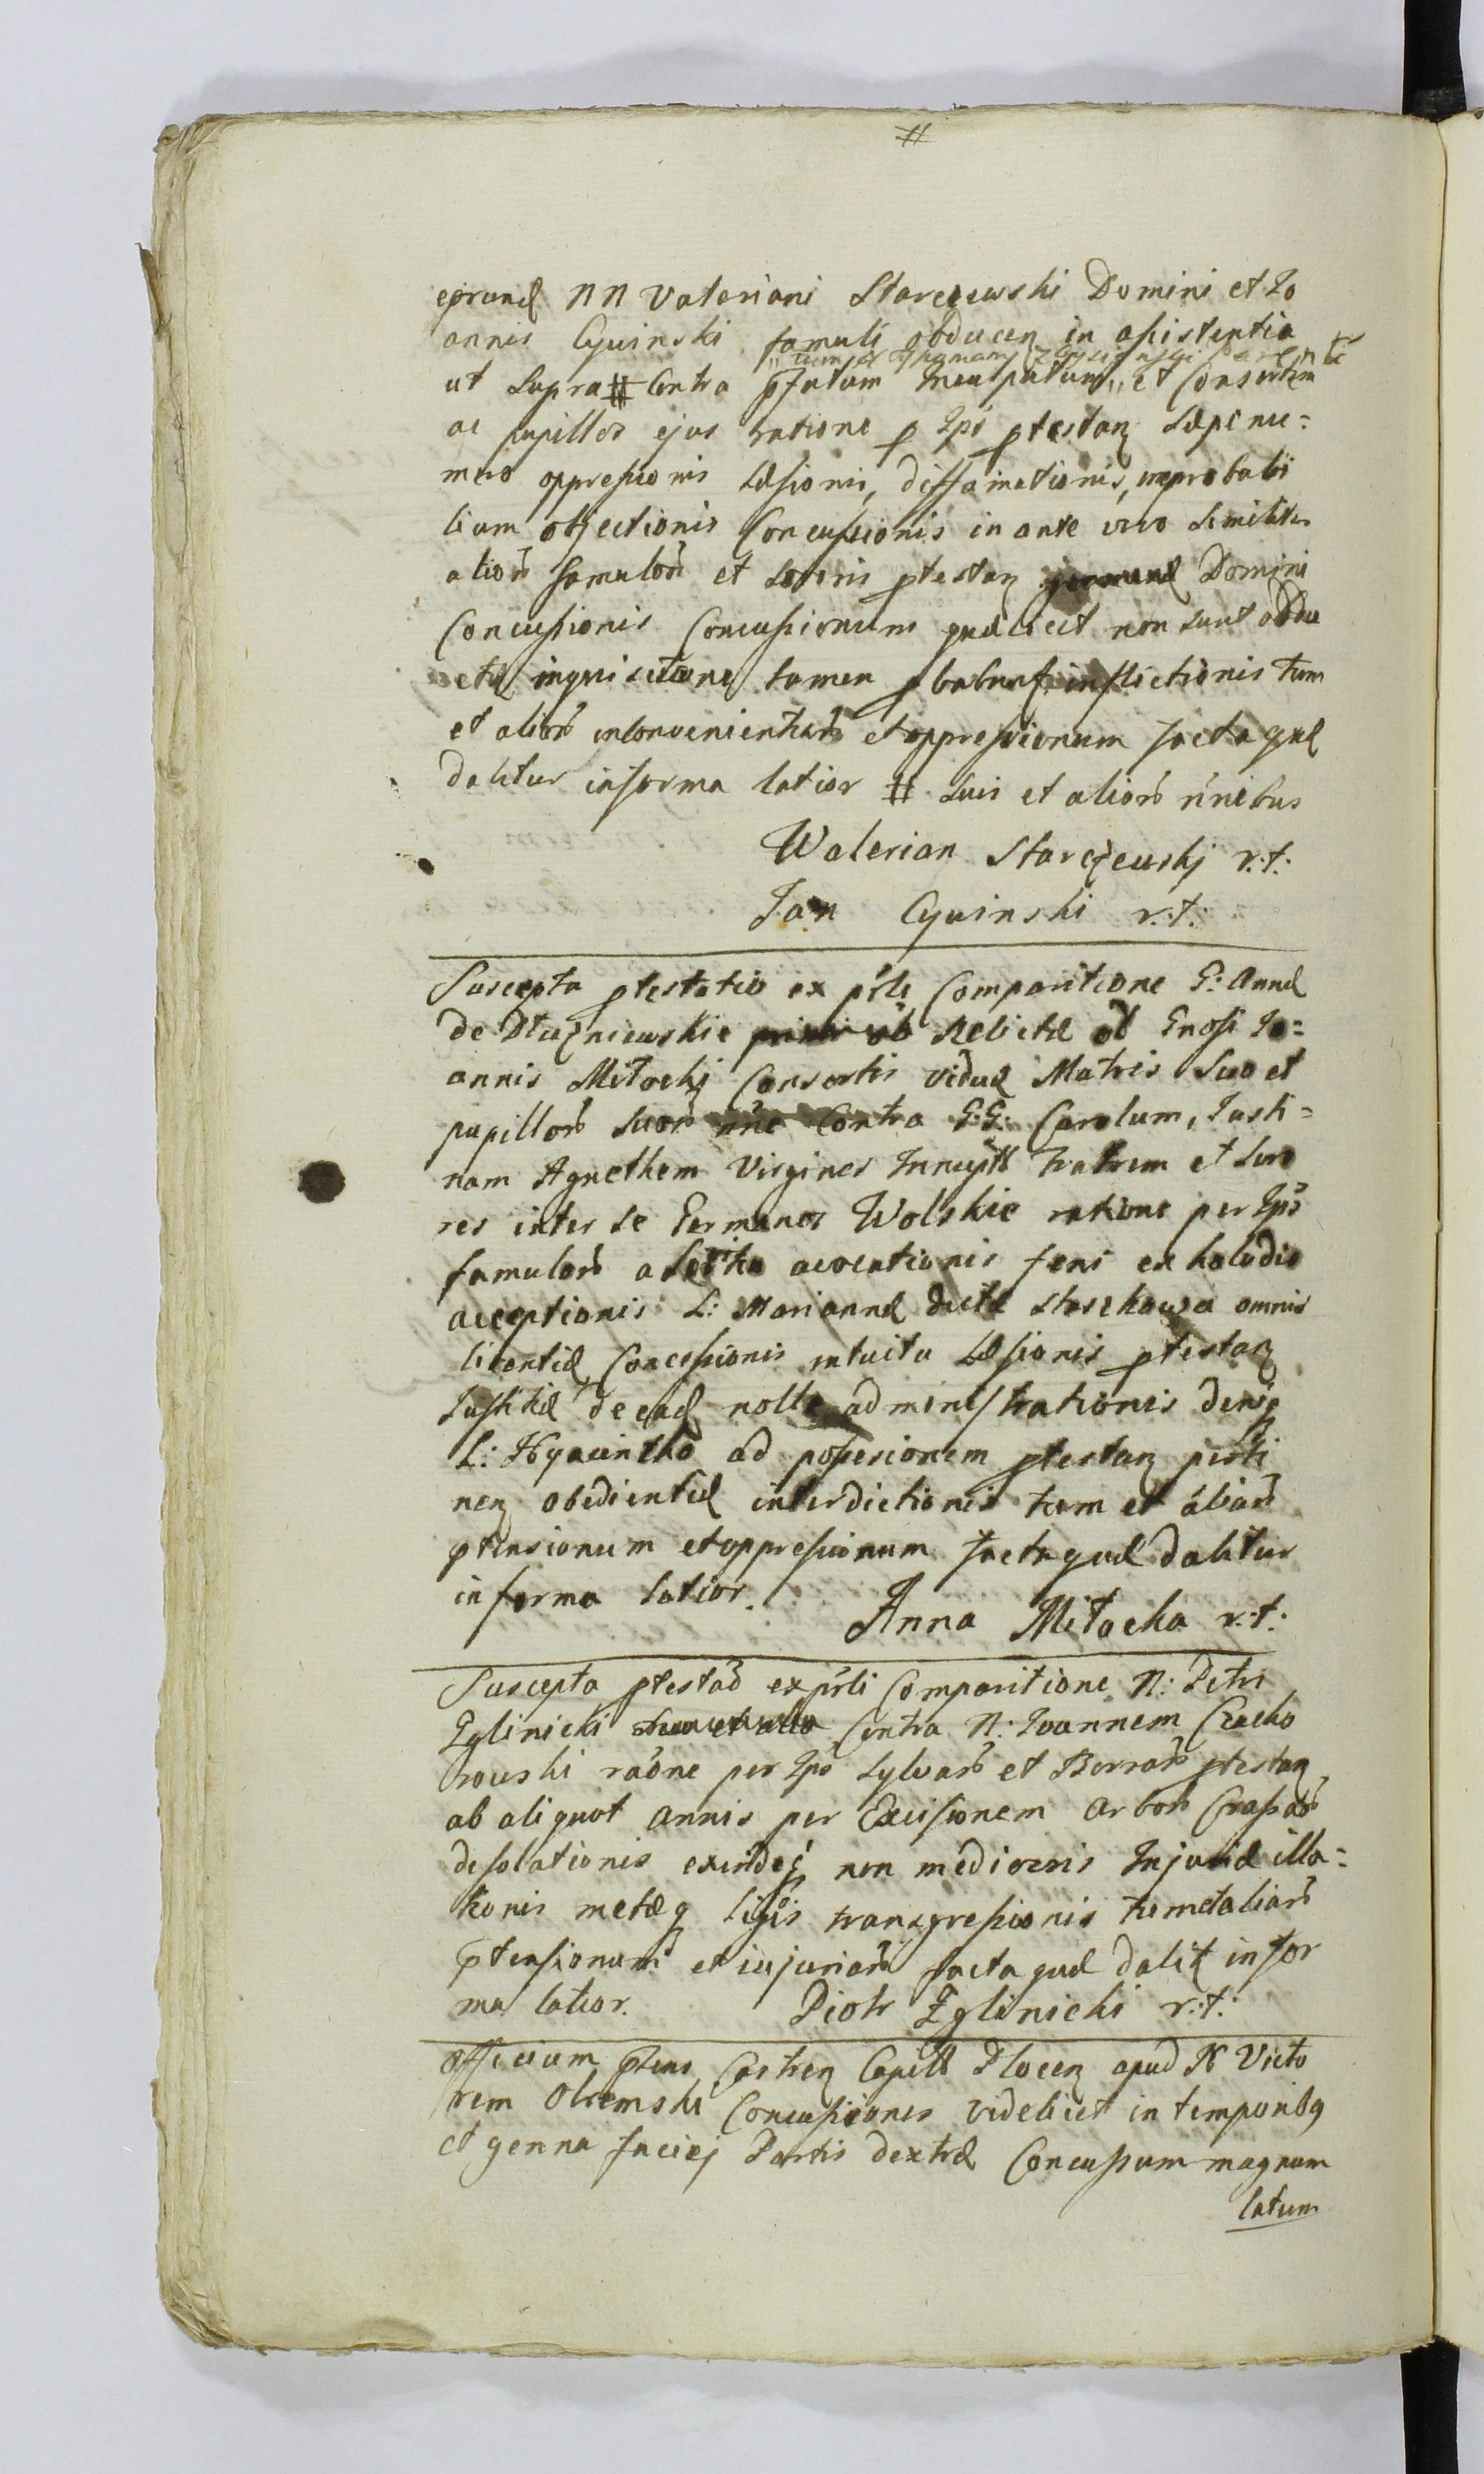 #
eorund NN Valeriani Starczewski Domini et Jo
annis Cywinski famuli obducen in assistentia
ut Supra # Contra Inculpatum et Consortem
ac pupillos ejus ratione p Ipos ptestan Sæpenu=
mero oppressionis Læsionis, diffamationis, improbabi
lium objectionis Concussionis in ante vero Similiter
alior famulor et Sororis ptestan Domini
Concussionis Concussionum quæ licet non sunt obdu
ctæ inquisitione tamen pbabunt inflictionis tum
et alior inconvenientiar et oppressionum facta quæ
dabitur in forma latior # Suis et alior nnibus
Walerian Starczewskj r.t.
Jan Cywinski r.t.
Suscepta ptestatio ex psli Comparitione G: Annæ
de Dłuzniewskie Relictæ ol Gnosi Jo=
annis Miłockj Consortis viduæ Matris Suo et
pupillor Suor nne Contra G.G. Carolum, Justi=
nam Agnethem Virgines Innuptas Fratrem et Soro
res inter se Germanos Wolskie ratione per Ipos
famulor a avocationis feni ex
acceptionis L: Mariannæ dictæ omnis
licentiæ Concessionis intuitu Læsionis ptestan
Justitiæ de ead nolle administrationis denq
L: Hyacintho ad possesionem ptestan perti
nen obedientiæ interdictionis tum et aliar
ptensionum et oppressionum facta quæ dabitur
in forma latior.
Anna Miłocka r.t.
Suscepta ptestao ex psli Comparitione N: Petri
Zglinicki Contra N: Joannem Czacho
rowski raone per Ipos Sylvar et Borrar ptestan
ab aliquot annis per Excisionem arbor Crassar
desolationis exindeq non mediocris Injuriæ illa=
tionis metæq Ligis transgressionis tum et aliar
ptensionum et injuriar facta quæ dabit in for
ma latior.
Piotr Zglinicki r.t.
Officium ptens Castren Capitle Plocen apud N Victo
rem Olszemski Concussiones videlicet in temporibq
et genna faciej Partis dextræ Concussum magnum
latum